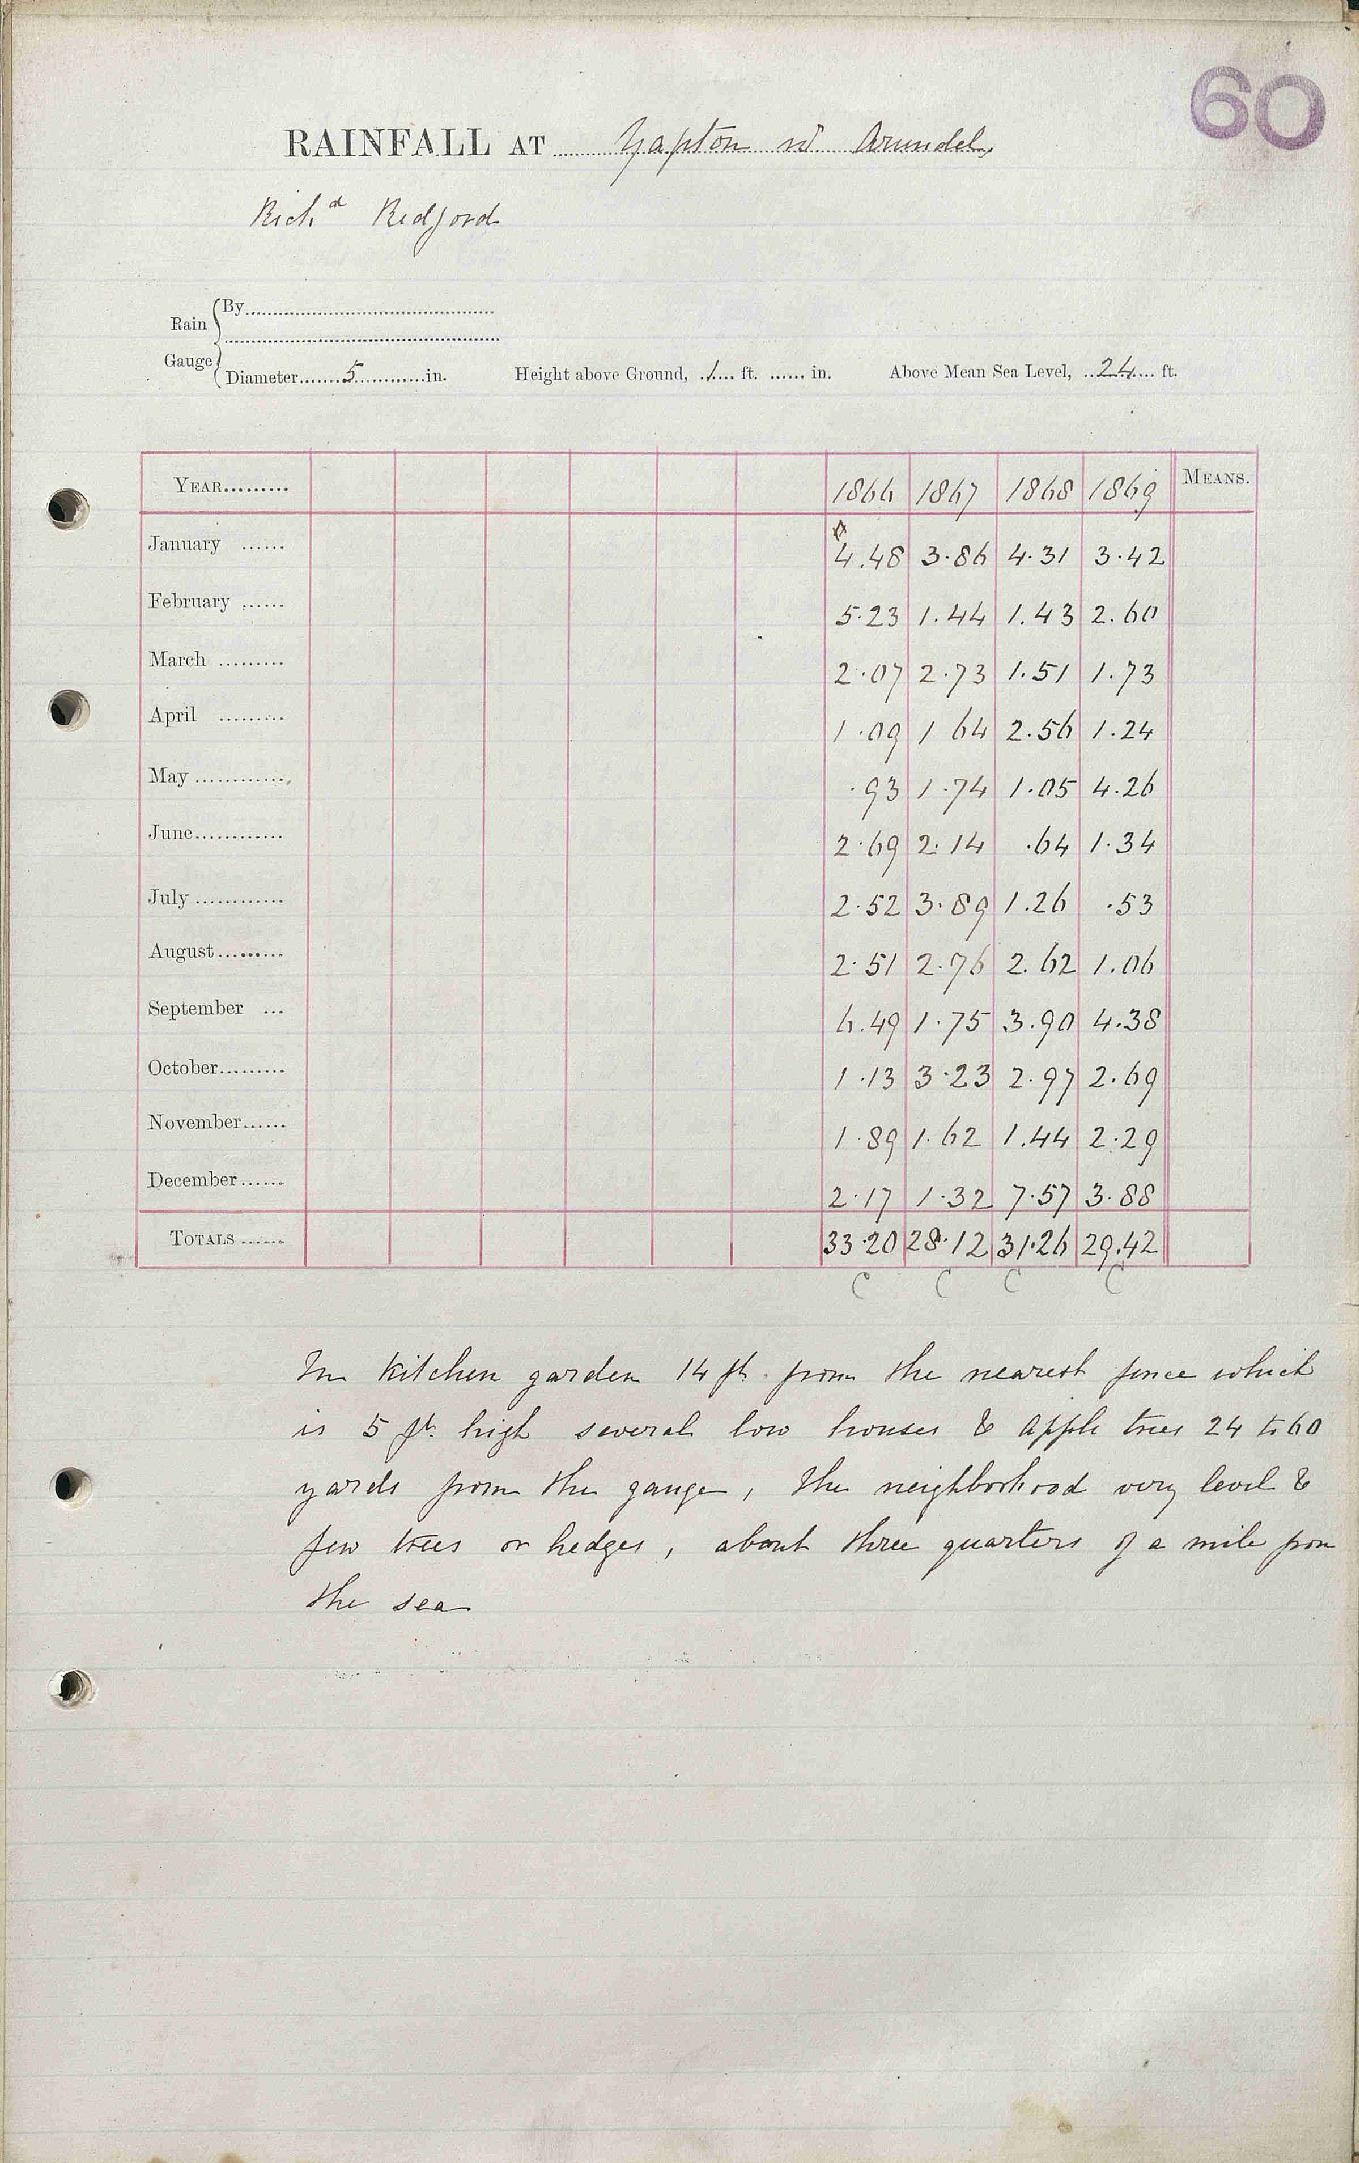 60
RAINFALL AT Yapton nr Arundel,
Richd Redford
Rain Gauge
By
Diameter 5 in. Height above Ground, 1 ft. in. Above Mean Sea Level, 24 ft.
YEAR 1866 1867 1868 1869 MEANS.
January 4.48 3.86 4.31 3.42
February 5.23 1.44 1.43 2.60
March 2.07 2.73 1.51 1.73
April 1.09 1 64 2.56 1.24
May .93 1.74 1.05 4.26
June 2.69 2.14 .64 1.34
July 2.52 3.89 1.26 .53
August 2.51 2.76 2.62 1.06
September 6.49 1.75 3.90 4.38
October 1.13 3.23 2.97 2.69
November 1.89 1.62 1.44 2.29
December 2.17 1.32 7.57 3.88
TOTALS 33.20 28.12 31.26 29.42
C C C C
In Kitchen garden 14 ft. from the nearest fence which
is 5 ft. high several low houses & apple trees 24 to 60
yards from the gauge, the neighborhood very level &
few trees or hedges, about three quarters of a mile from
the sea